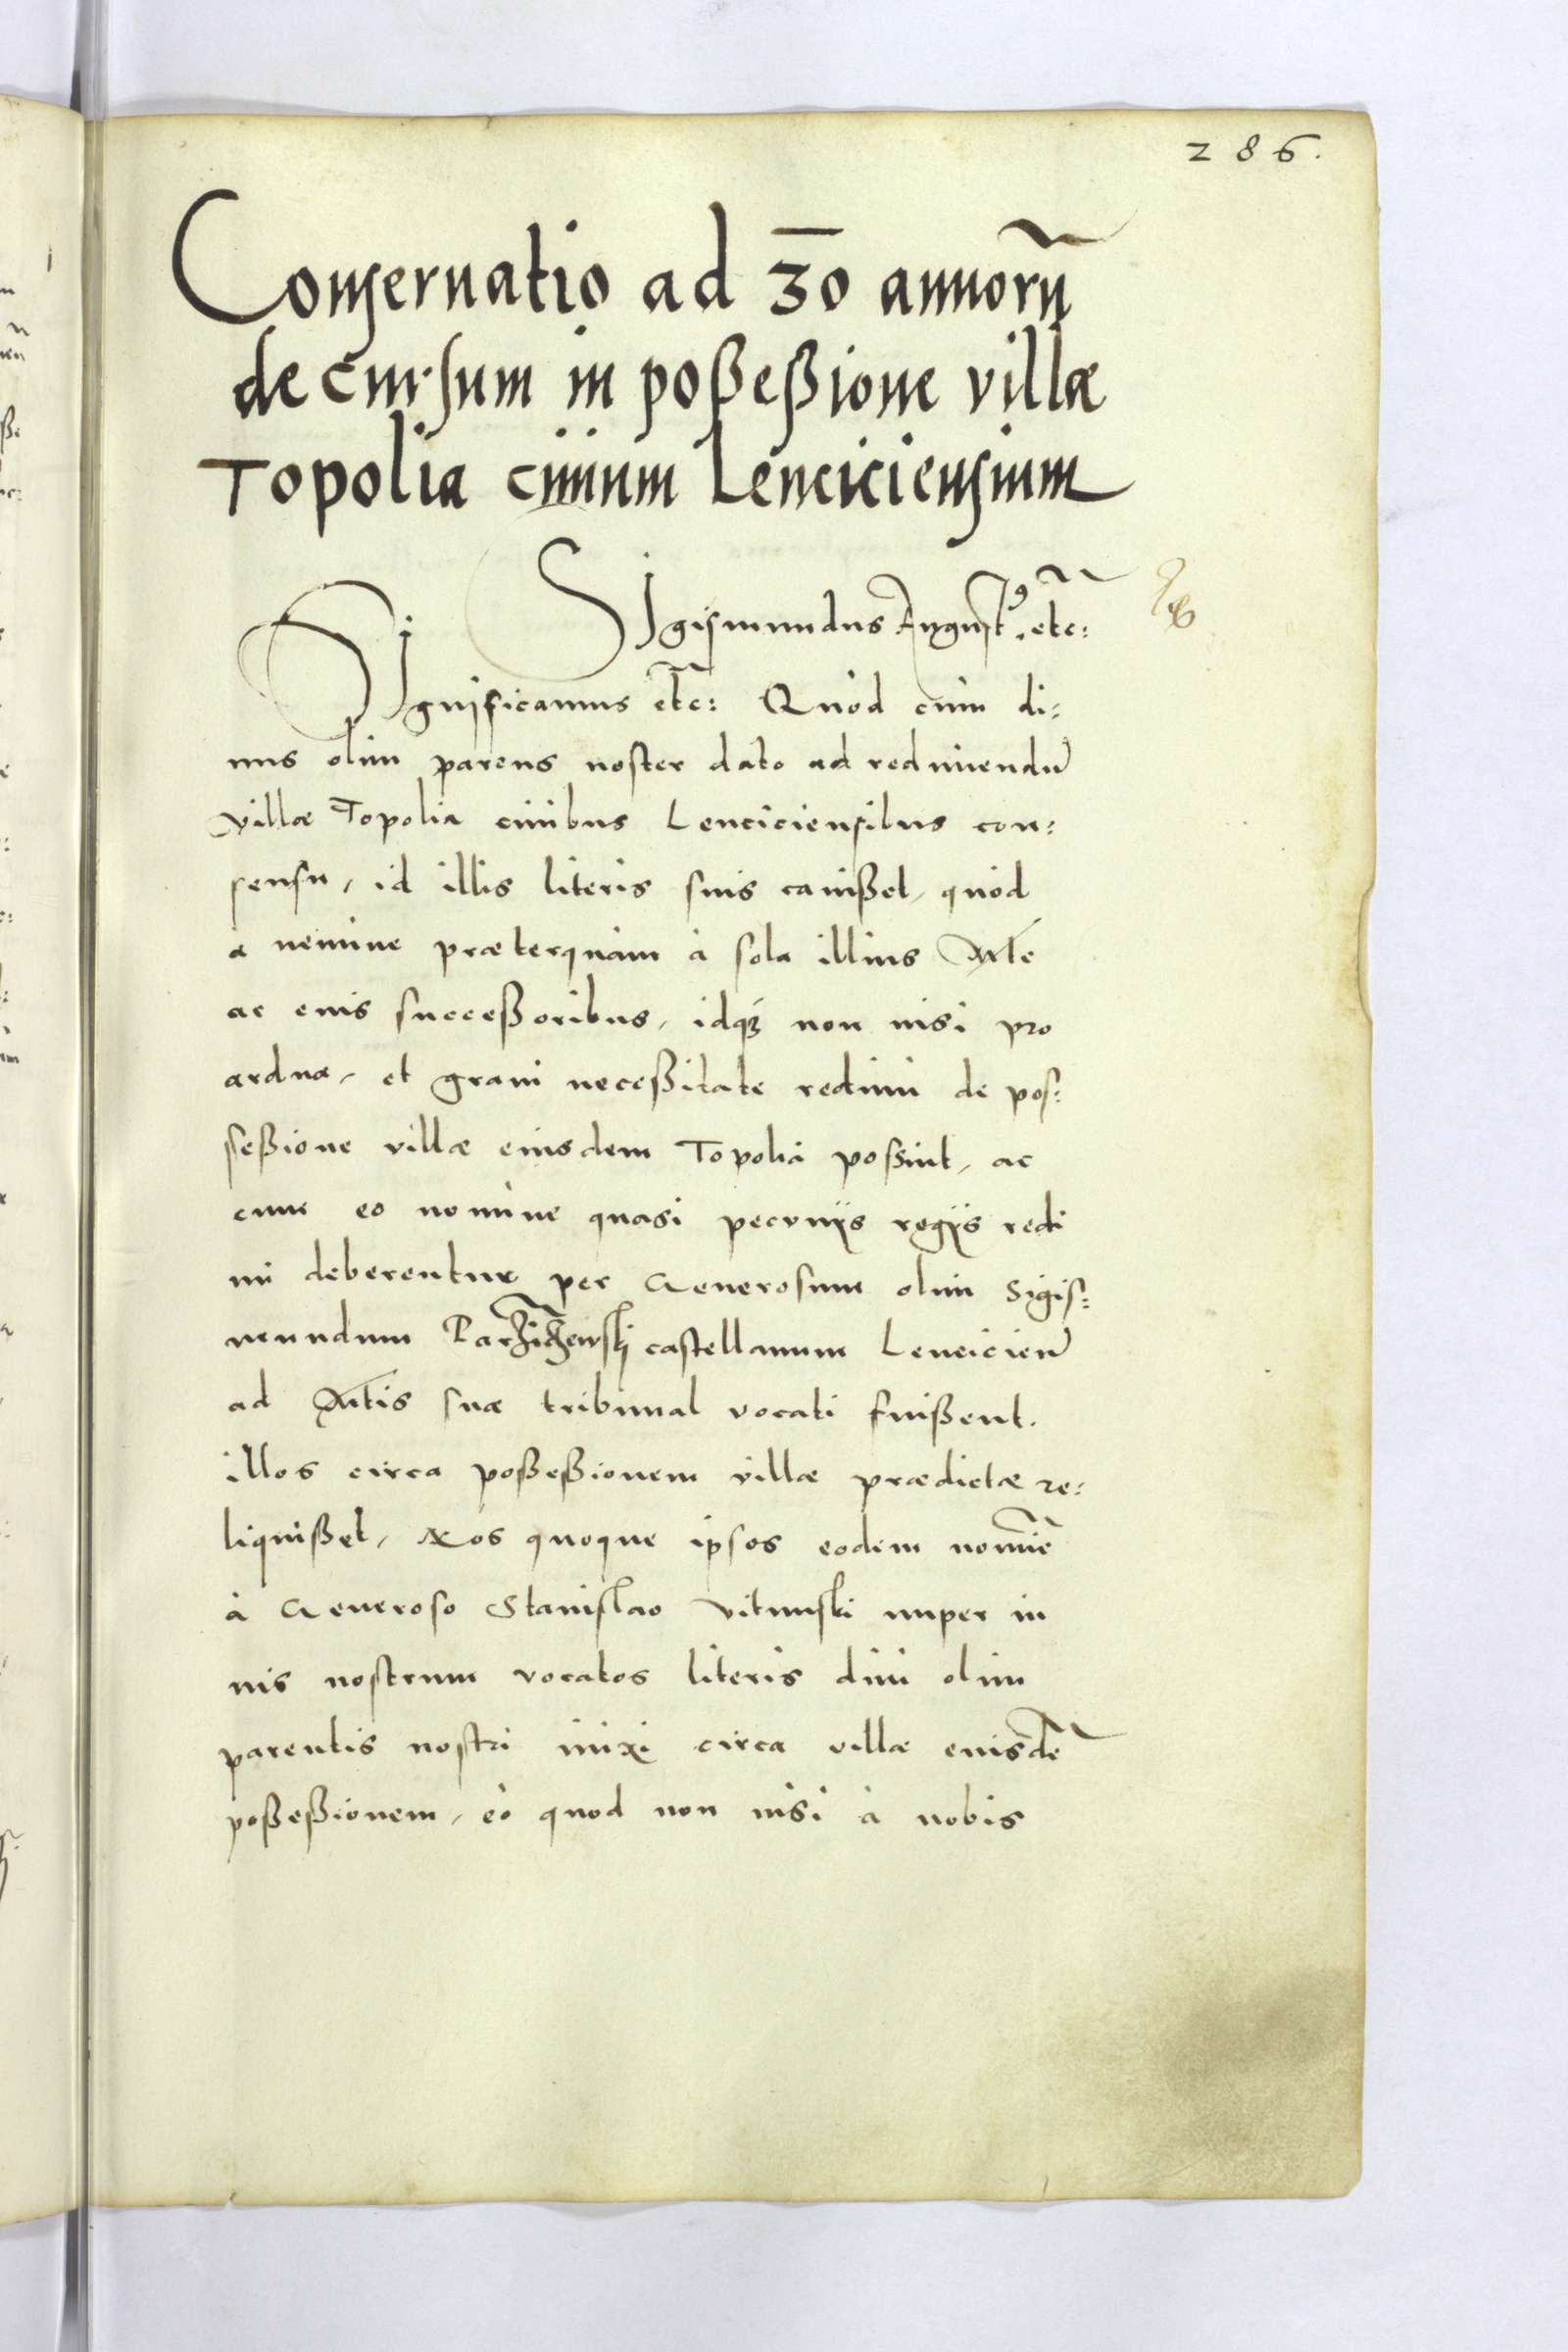 286.
Conseruatio ad 30 annorũ
decursum in poßeßione villæ
Topolia ciuium Lenciciensium
Sigismundus August9. etc:
Significamus etc: Quod cum di:
uus olim parens noster dato ad redimendũ
villæ Topolia ciuibus Lenciciensibus con:
sensu, id illis literis suis cauißet, quòd
a nemine præterquàm à sola illius Mte
ac eius succeßoribus, idq3 non nisi pro
ardua, et graui neceßitate redimi de pos:
seßione villæ eiusdem Topolia possint, ac
cum eo nomine quasi pecunijs regijs redi
mi deberentur per Generosum olim Sigis:
mundum Parzniczewskj castellanum Lencicien̄
ad Mtis suæ tribunal vocati fuißent.
illos circa poßeßionem villæ prædictæ re:
liquißet, Nos quoque ipsos eodem nomĩe
à Generoso Stanislao Vitunski nuper in
ius nostrum vocatos literis diui olim
parentis nostri inixi circa villæ eiusdẽ
poßeßionem, eò quod non nisi à nobis